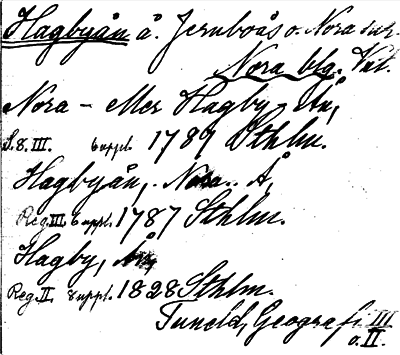 Hagbyån å. Jernboås o. Nora skr.
Nora blg. Vstl.
Nora - eller Hagby - Å,
S. 8. III. 6 uppl. 1787 Sthlm.
Hagbyån, Nora.. Å,
Reg. III 6 uppl. 1787 Sthlm.
Hagby, Å
Reg. II. 8 uppl. 1828 Sthlm.
Tuneld, Geografi III
o. II.